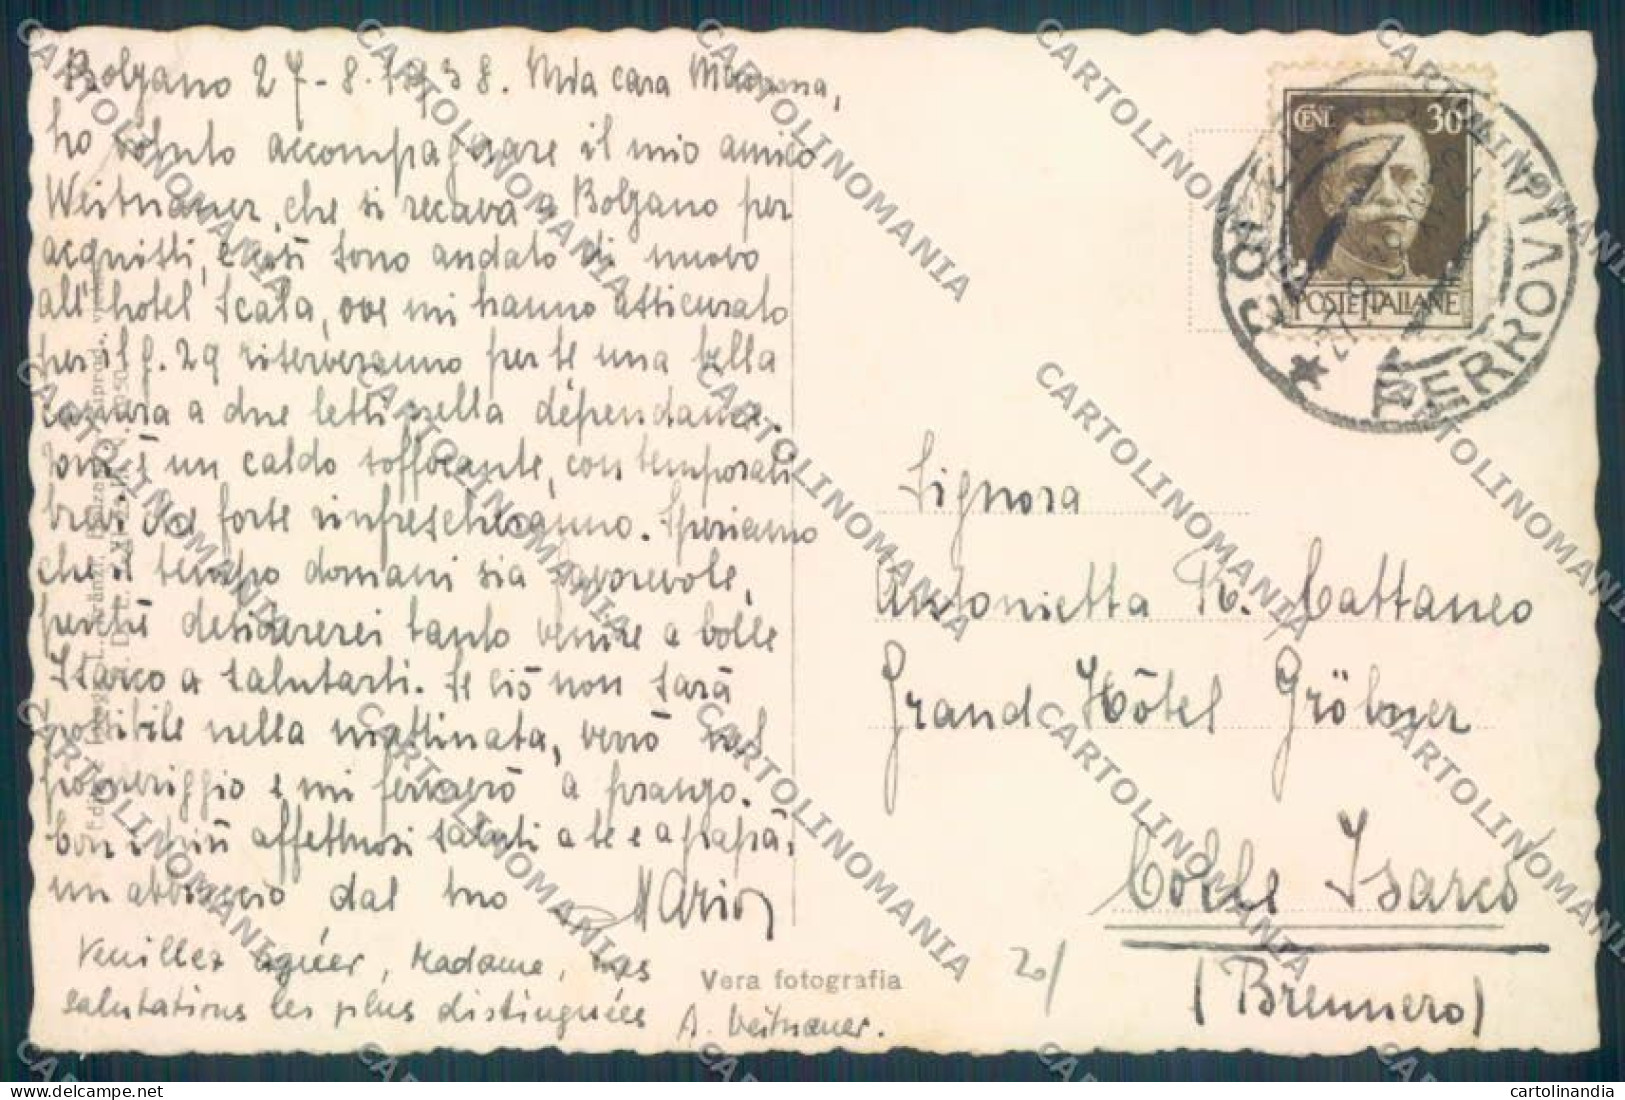 Bolzano 27-8.1938. Mia cara Mamma,
ho voluto accompagnare il mio amico
Weitnauer, che si recava a Bolzano per
acquisti, e così sono andato di nuovo
all'hotel Scala, ove mi hanno assicurato
per il g. 29 riserveranno per te una bella
camera a due letti nella dépendance.
un caldo soffocante, con temporali
che forse rinfrescheranno. Speriamo
che il tempo domani sia favorevole,
perché desidererei tanto venire a Colle
Isarco a salutarti. Se ciò non sarà
possibile nella mattinata, verrò nel
pomeriggio e mi fermerò a pranzo.
Con i più affettuosi saluti a te e a papà,
un abbraccio dal tuo Mario
Veuillez agréer, Madame, mes
salutations les plus distinguées
A. Weitnauer.
Vera fotografia
CENT. 30
POSTE ITALIANE
FERROVIA
Signora
Antonietta R. Cattaneo
Grand Hôtel Gröbner
Colle Isarco
(Brennero)
20/
CARTOLINOMANIA
cartolinandia